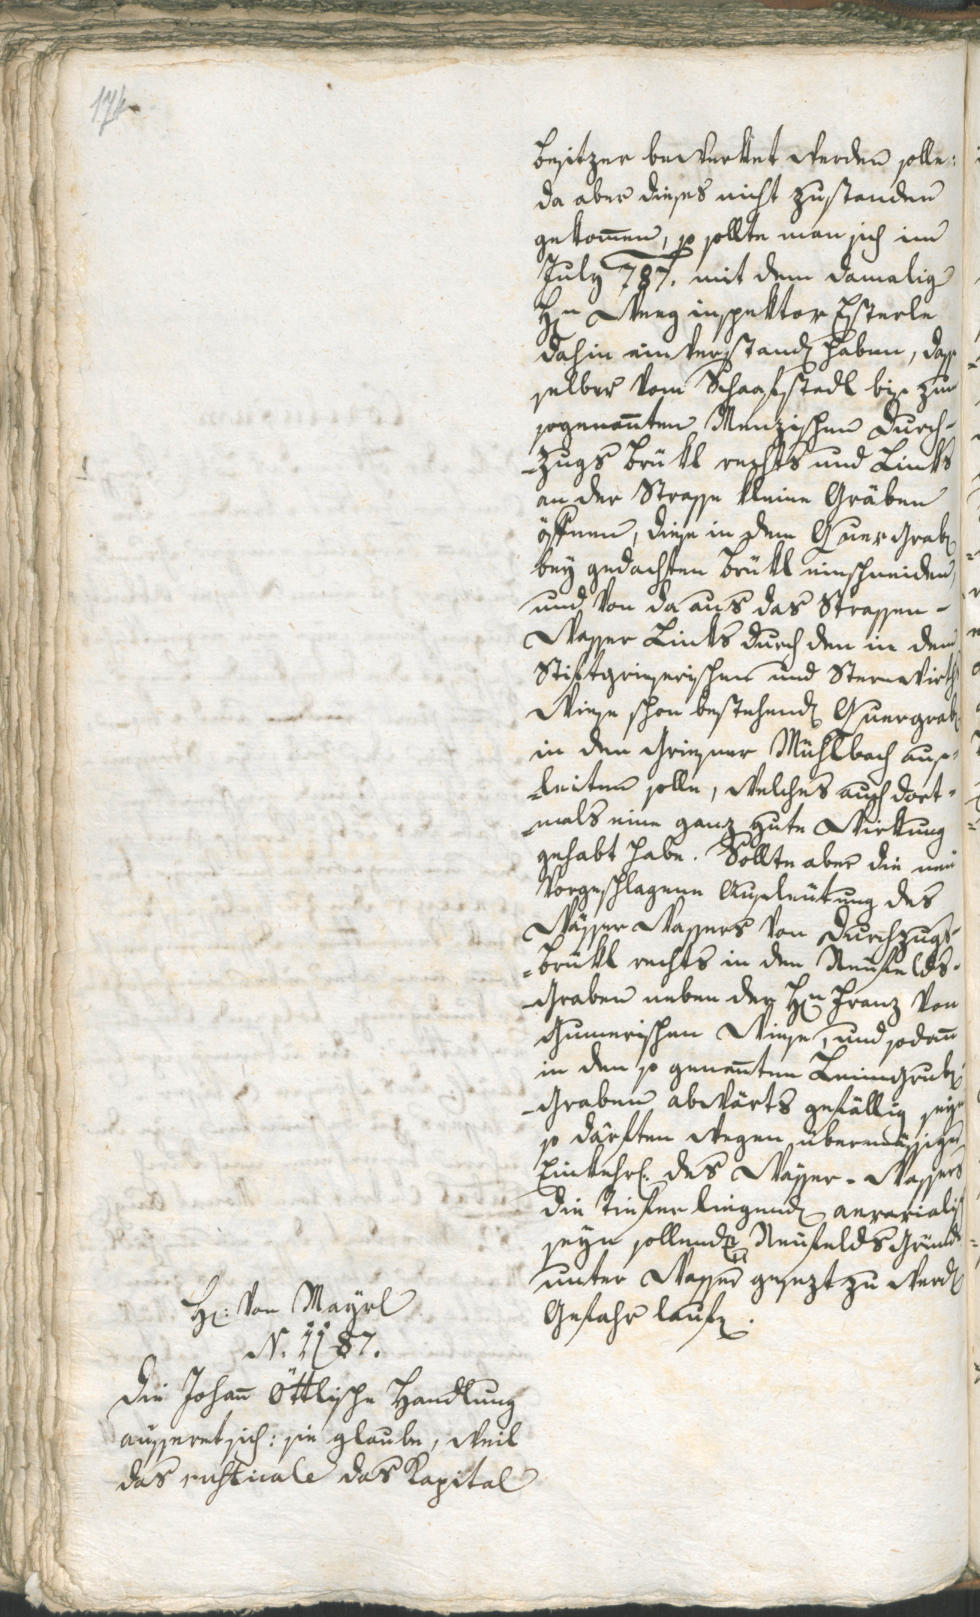 174
besitzer bewerket werden solle:
da aber dieses nicht zustanden
gekom̄en, so sollte man sich im
July 787. mit dem damalig
H̄n Weeg inspektor Esterle
dahin einverstand haben, dass
selber vom Schaafstadl bis zum
sogenan̄ten Menzischen Durch-
-zugs brükl rechts und Links
an der Strasse kleine Gräben
öffnen, diese in dem Quer Grab
bey gedachten brükl einschneiden,
und von da aus das Strassen-
Wasser Links durch den in dem
Stiftgriesserischen und Sternwirths
Wiese schon bestehend Quergrab
in den Griesner Mühlbach aus-
-leiten solle, welches auch dort-
-mals eine ganz gute Wirkung
gehabt habe. Sollte aber die neü
vorgeschlagene Ausleütung des
Wässer Wassers von Durchzugs-
-brükl rechts in den Neüfelds-
-Graben neben der H̄n Franz von
Gumerischen Wiese, und sodan̄
in den so genan̄ten Leimgrub-
-Graben abwärts gefällig seyn
so därften wegen übermässigen
Einkehr des Wässer-Wassers
die Tiefer liegend aerarialisch
seyn sollend Neüfelds Gründ
unter Wasser gesezt zu werd
Gefahr lauf.
H: von Mayrl
N. 1187.
Die Johan̄ Öttlische Handlung
äusseret sich: sie glaube, weil
das rusticale das Kapital